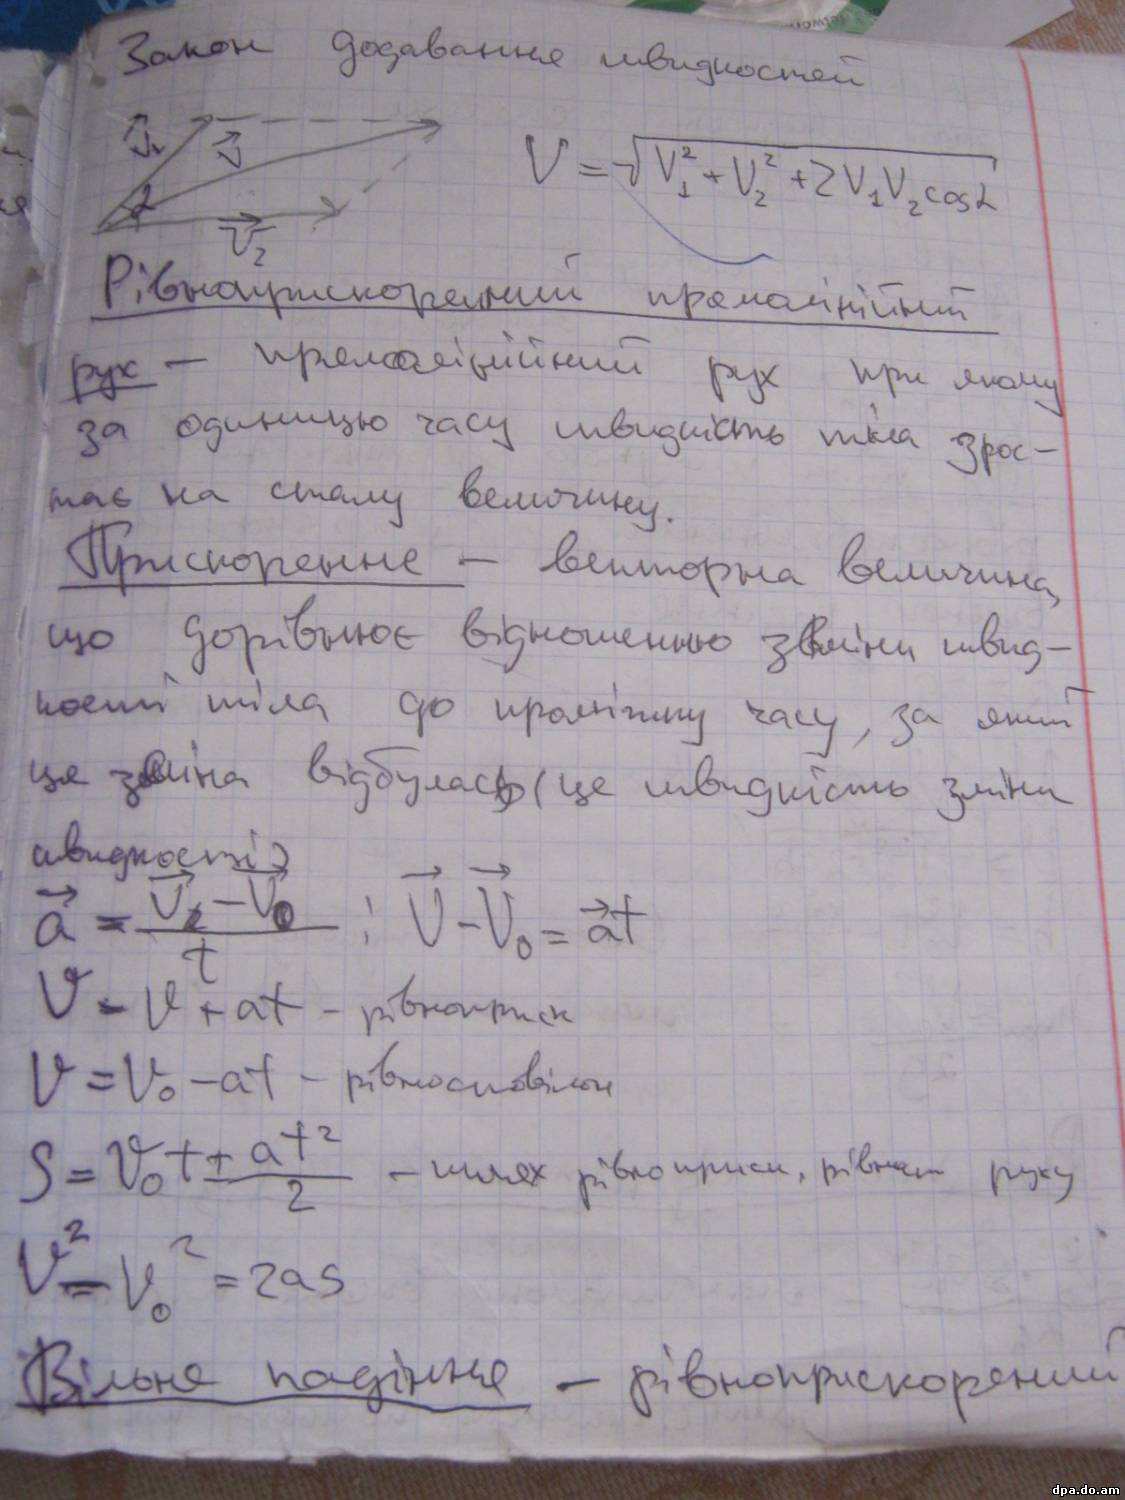 Закон додавання швидкостей
V₁ V
V = √V₁² + V₂² + 2V₁V₂cosα
α
V₂
Рівноприскорений прямолінійний
рух – прямолінійний рух при якому
за одиницю часу швидкість тіла зрос-
тає на сталу величину.
Прискорення – векторна величина,
що дорівнює відношенню зміни швид-
кості тіла до проміжку часу, за який
ця зміна відбулась (це швидкість зміни
швидкості)
a = V - V₀ / t ; V - V₀ = at
V = V + at – рівноприск
V = V₀ - at – рівносповільн
S = V₀t ± at² / 2 – шлях рівноприск, руху
V² - V₀² = 2as
Вільне падіння – рівноприскорений
dpa.do.am